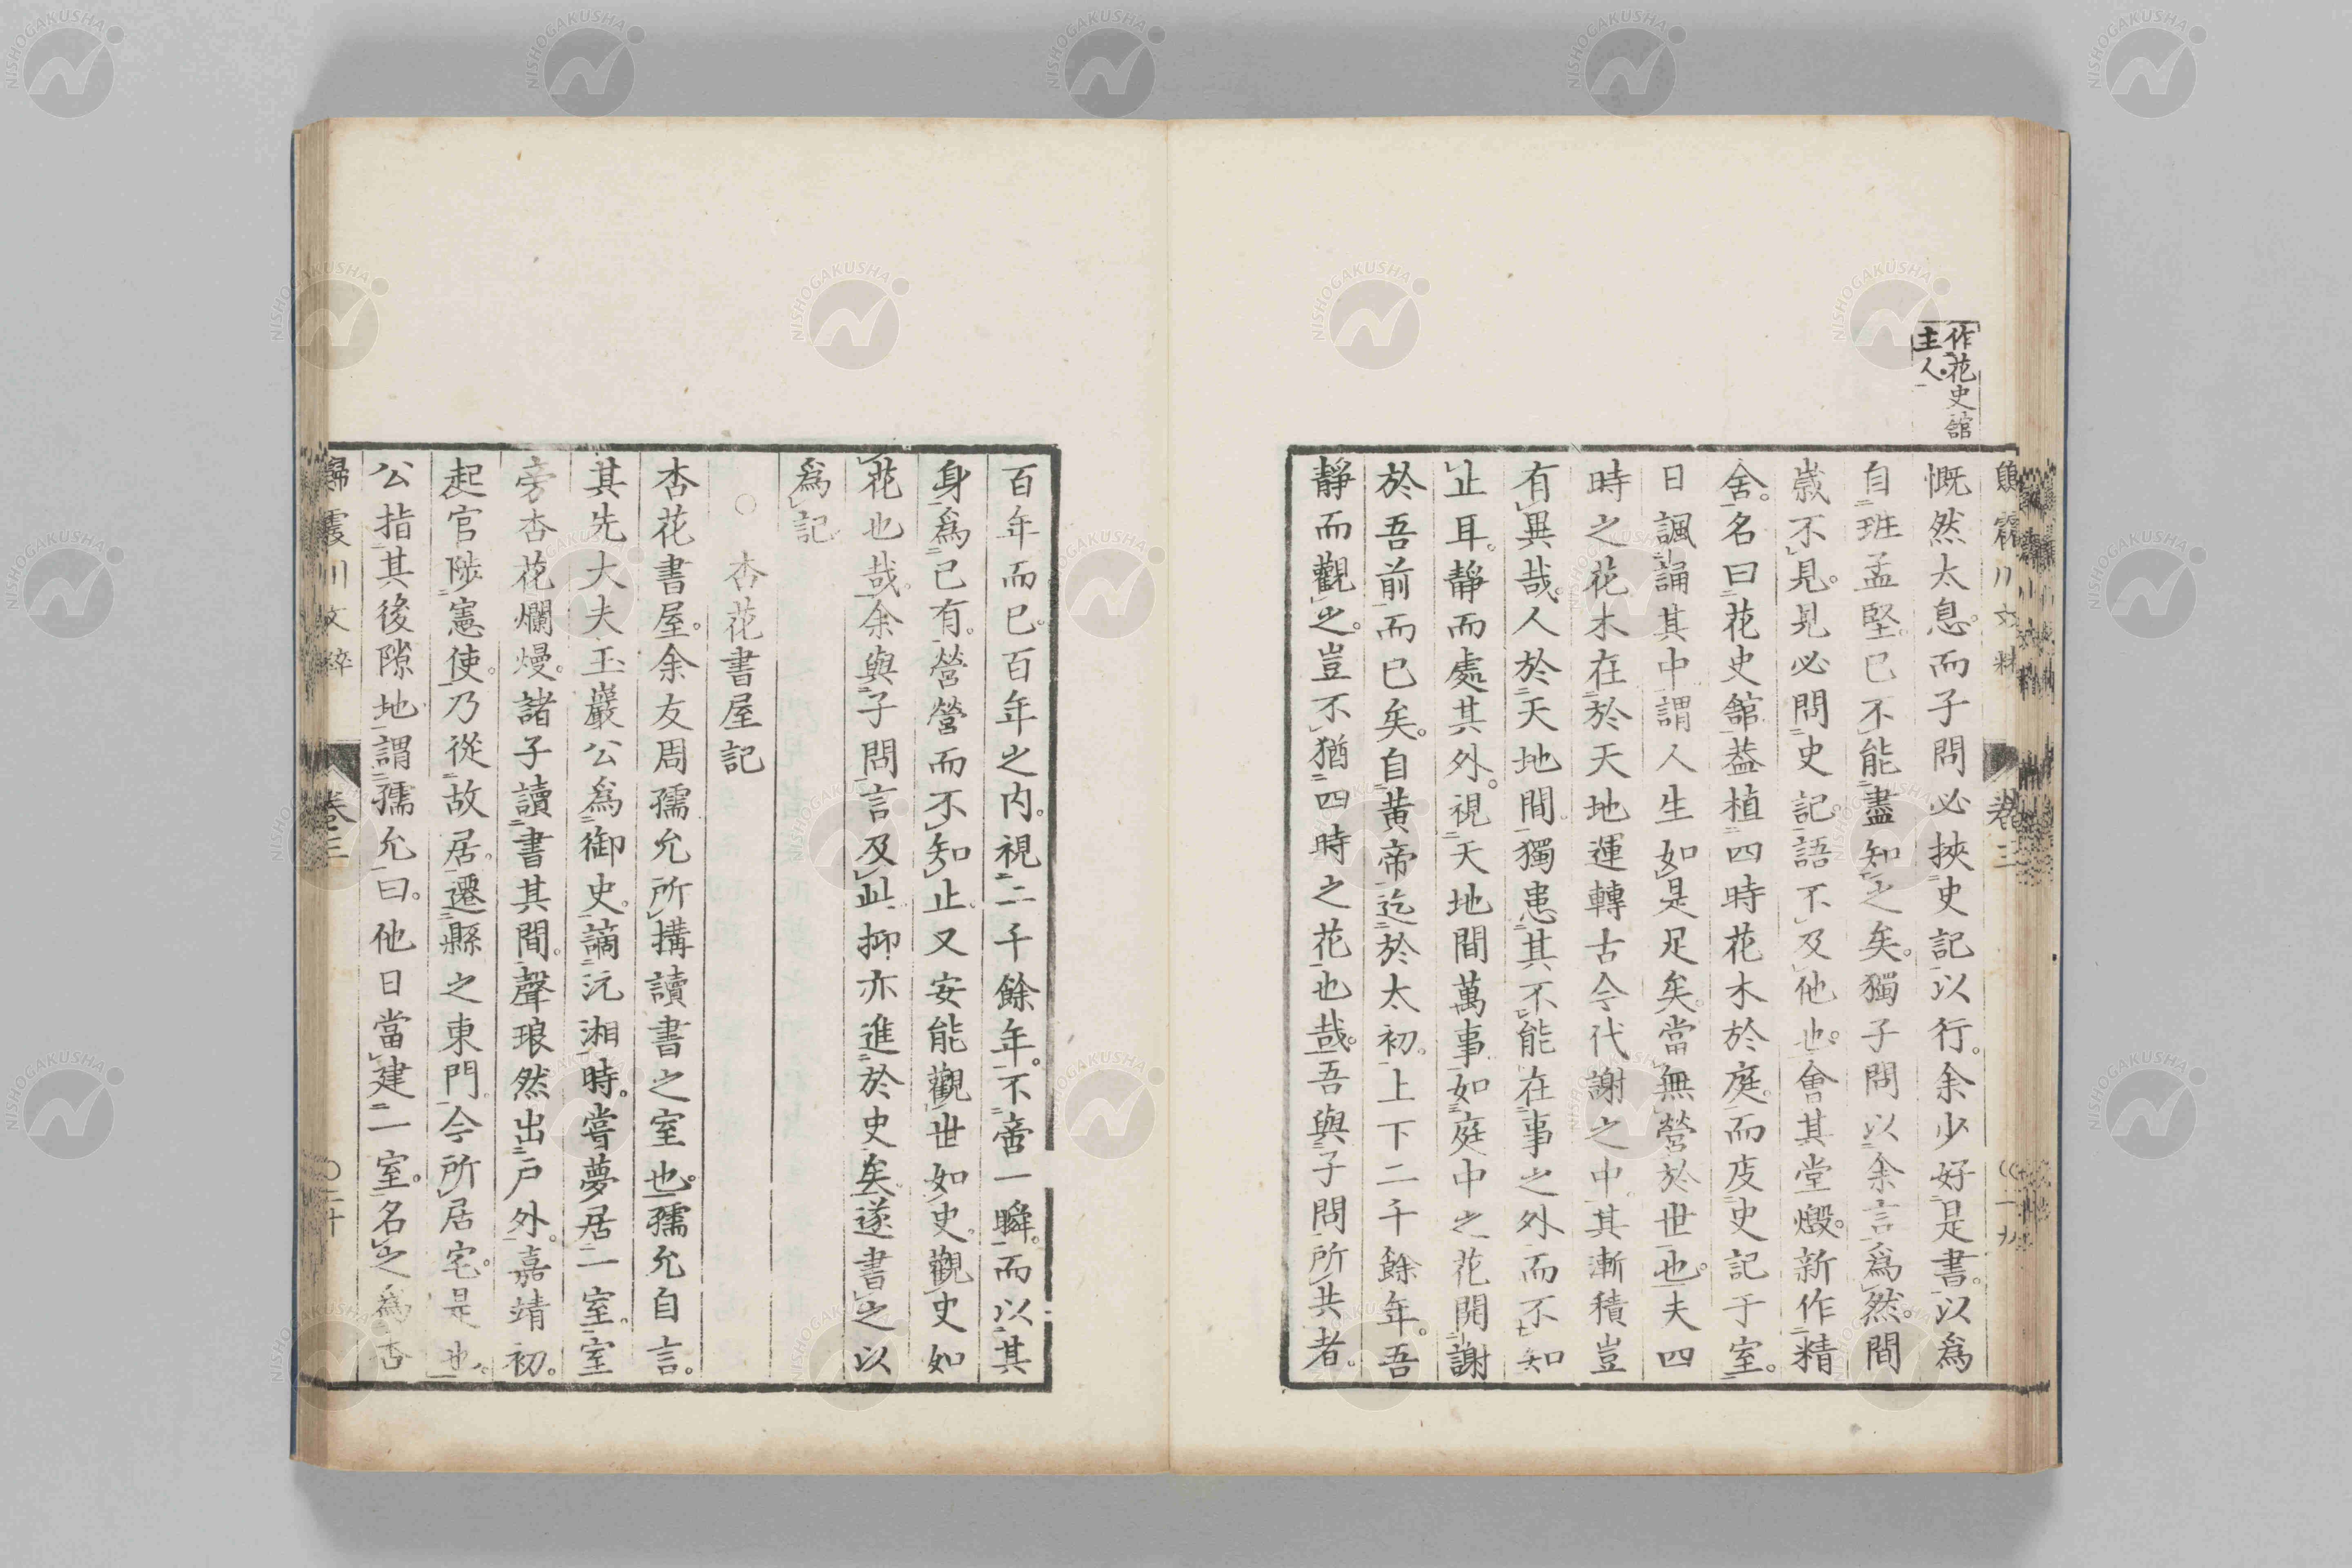 作花史舘
主人
慨然太息。而子問必挾史記以行。余少好是書。以爲
自班孟堅。已不能盡知之矣。獨子問以余言爲然。間
歲不見。見必問史記。語不及他也。會其堂燬。新作精
舍。名曰花史舘。葢植四時花木於庭。而庋史記于室。
日諷誦其中。謂人生如是足矣。當無營於世也。夫四
時之花木。在於天地運轉古今代謝之中。其漸積豈
有異哉。人於天地間。獨患其不能在事之外。而不知
止耳。靜而處其外。視天地間萬事。如庭中之花開謝
於吾前而已矣。自黄帝迄於太初。上下二千餘年。吾
靜而觀之。豈不猶四時之花也哉。吾與子問所共者。
百年而已。百年之内。視二千餘年。不啻一瞬。而以其
身爲已有。營營而不知止。又安能觀世如史。觀史如
花也哉。余與子問言及此。抑亦進於史矣。遂書之以
爲記
○ 杏花書屋記
杏花書屋。余友周孺允所搆讀書之室也。孺允自言。
其先大夫玉巖公爲御史。謫沅湘時。嘗夢居一室。室
旁杏花爛熳。諸子讀書其間。聲琅然出戸外。嘉靖初。
起官陟憲使。乃從故居。遷縣之東門。今所居宅是也。
公指其後隙地。謂孺允曰。他日當建一室。名之爲杏
歸震川文粹
卷三
○二十